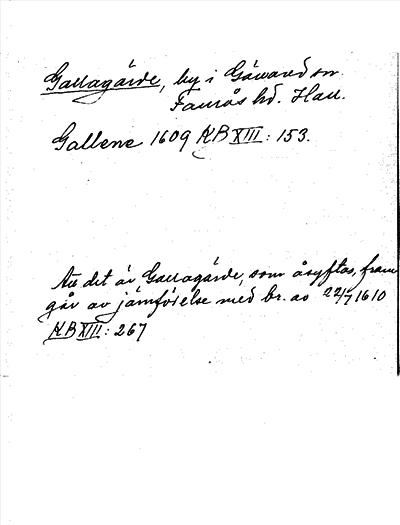 Gallagärde, by i Gäwared sn.
Faurås hd. Hall.
Gallene 1609 KB XIII: 153.
Att det är Gallagärde, som åsyftas, fram
går av jämförelse med br. av 22/7 1610
KB XIII: 267